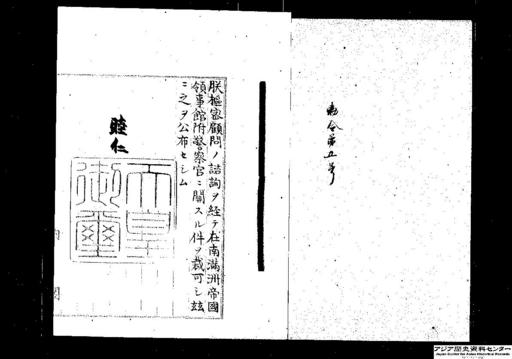 勅令第五号
朕樞密顧問ノ諮詢ヲ経テ在南満洲帝國
領事館附警察官ニ関スル件ヲ裁可シ玆
ニ之ヲ公布セシム
睦仁
天皇
御璽
アジア歴史資料センター
Japan Center for Asian Historical Records